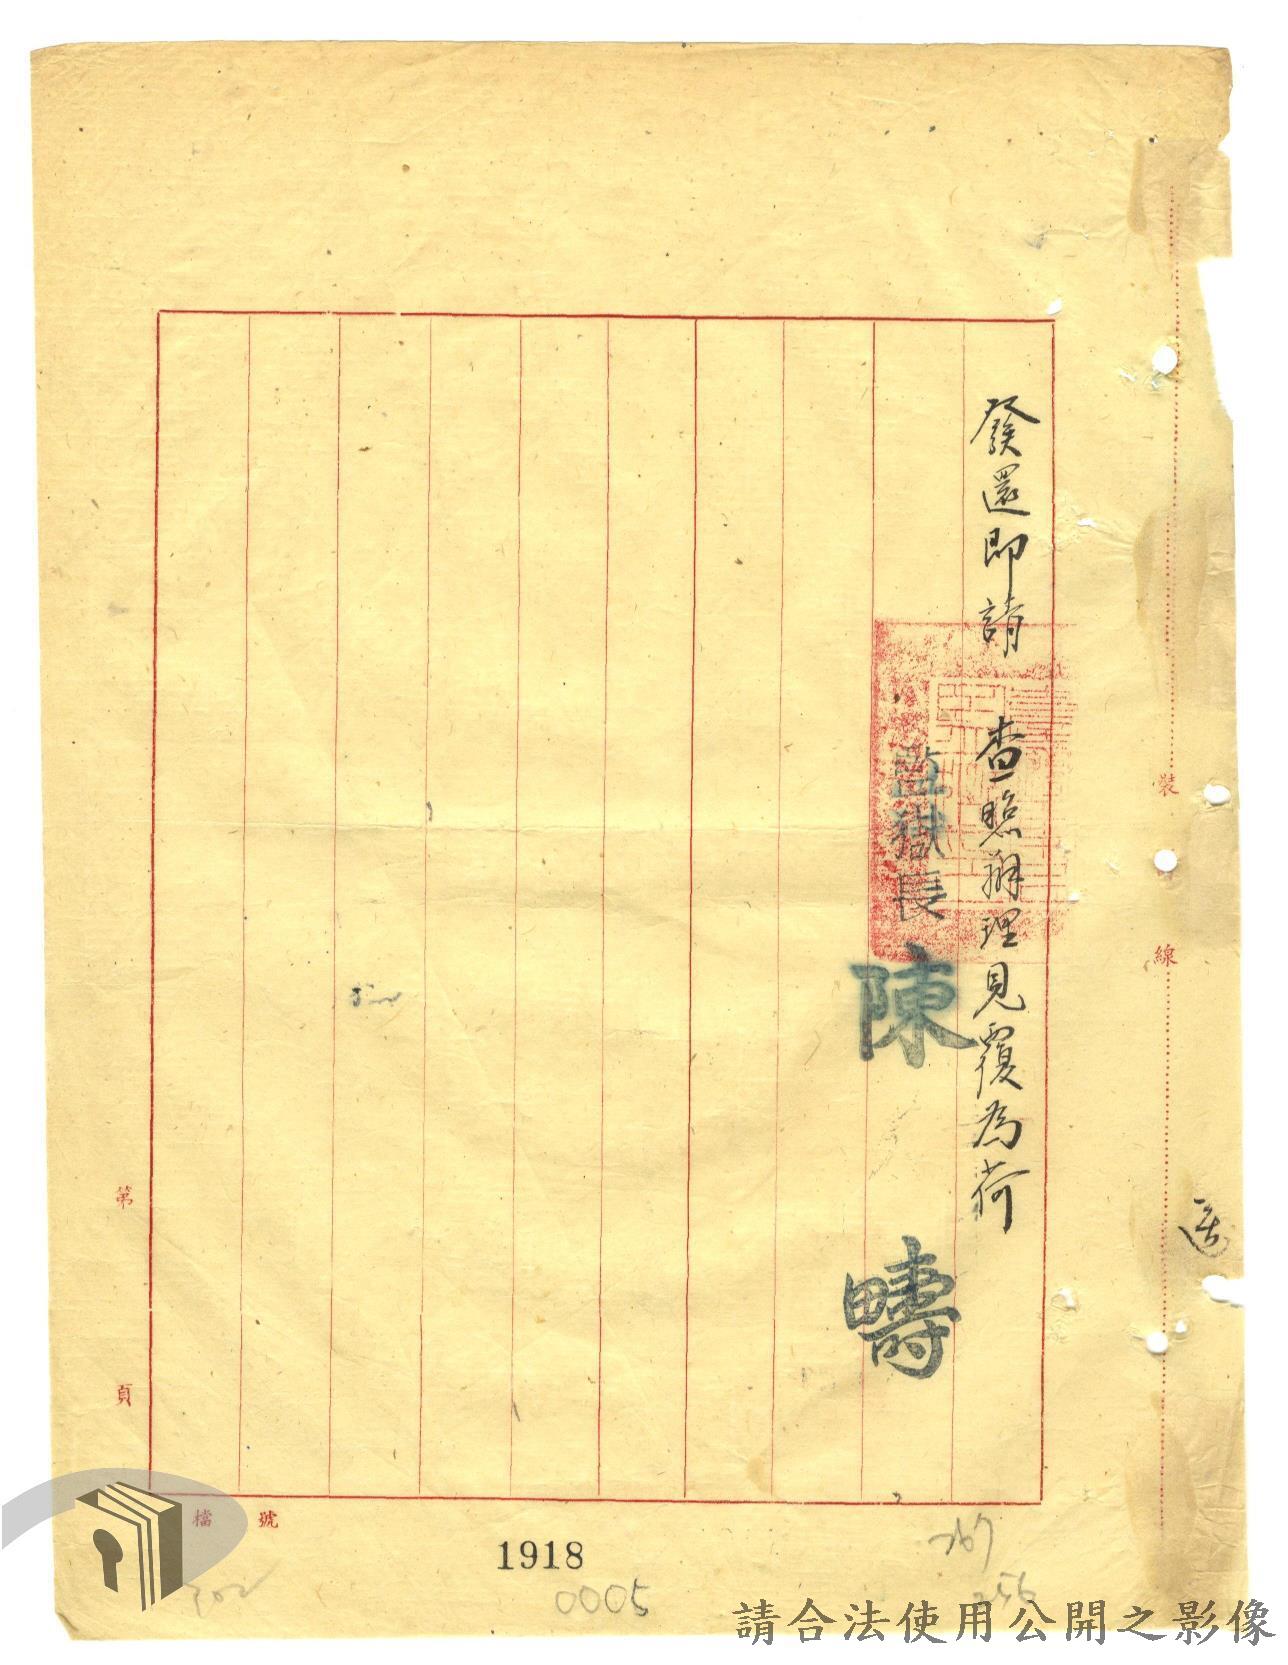 發還即請　查照辦理見覆為荷
監獄長　陳疇
裝
線
第
頁
檔
號
1918
0005
267
256
302
請合法使用公開之影像